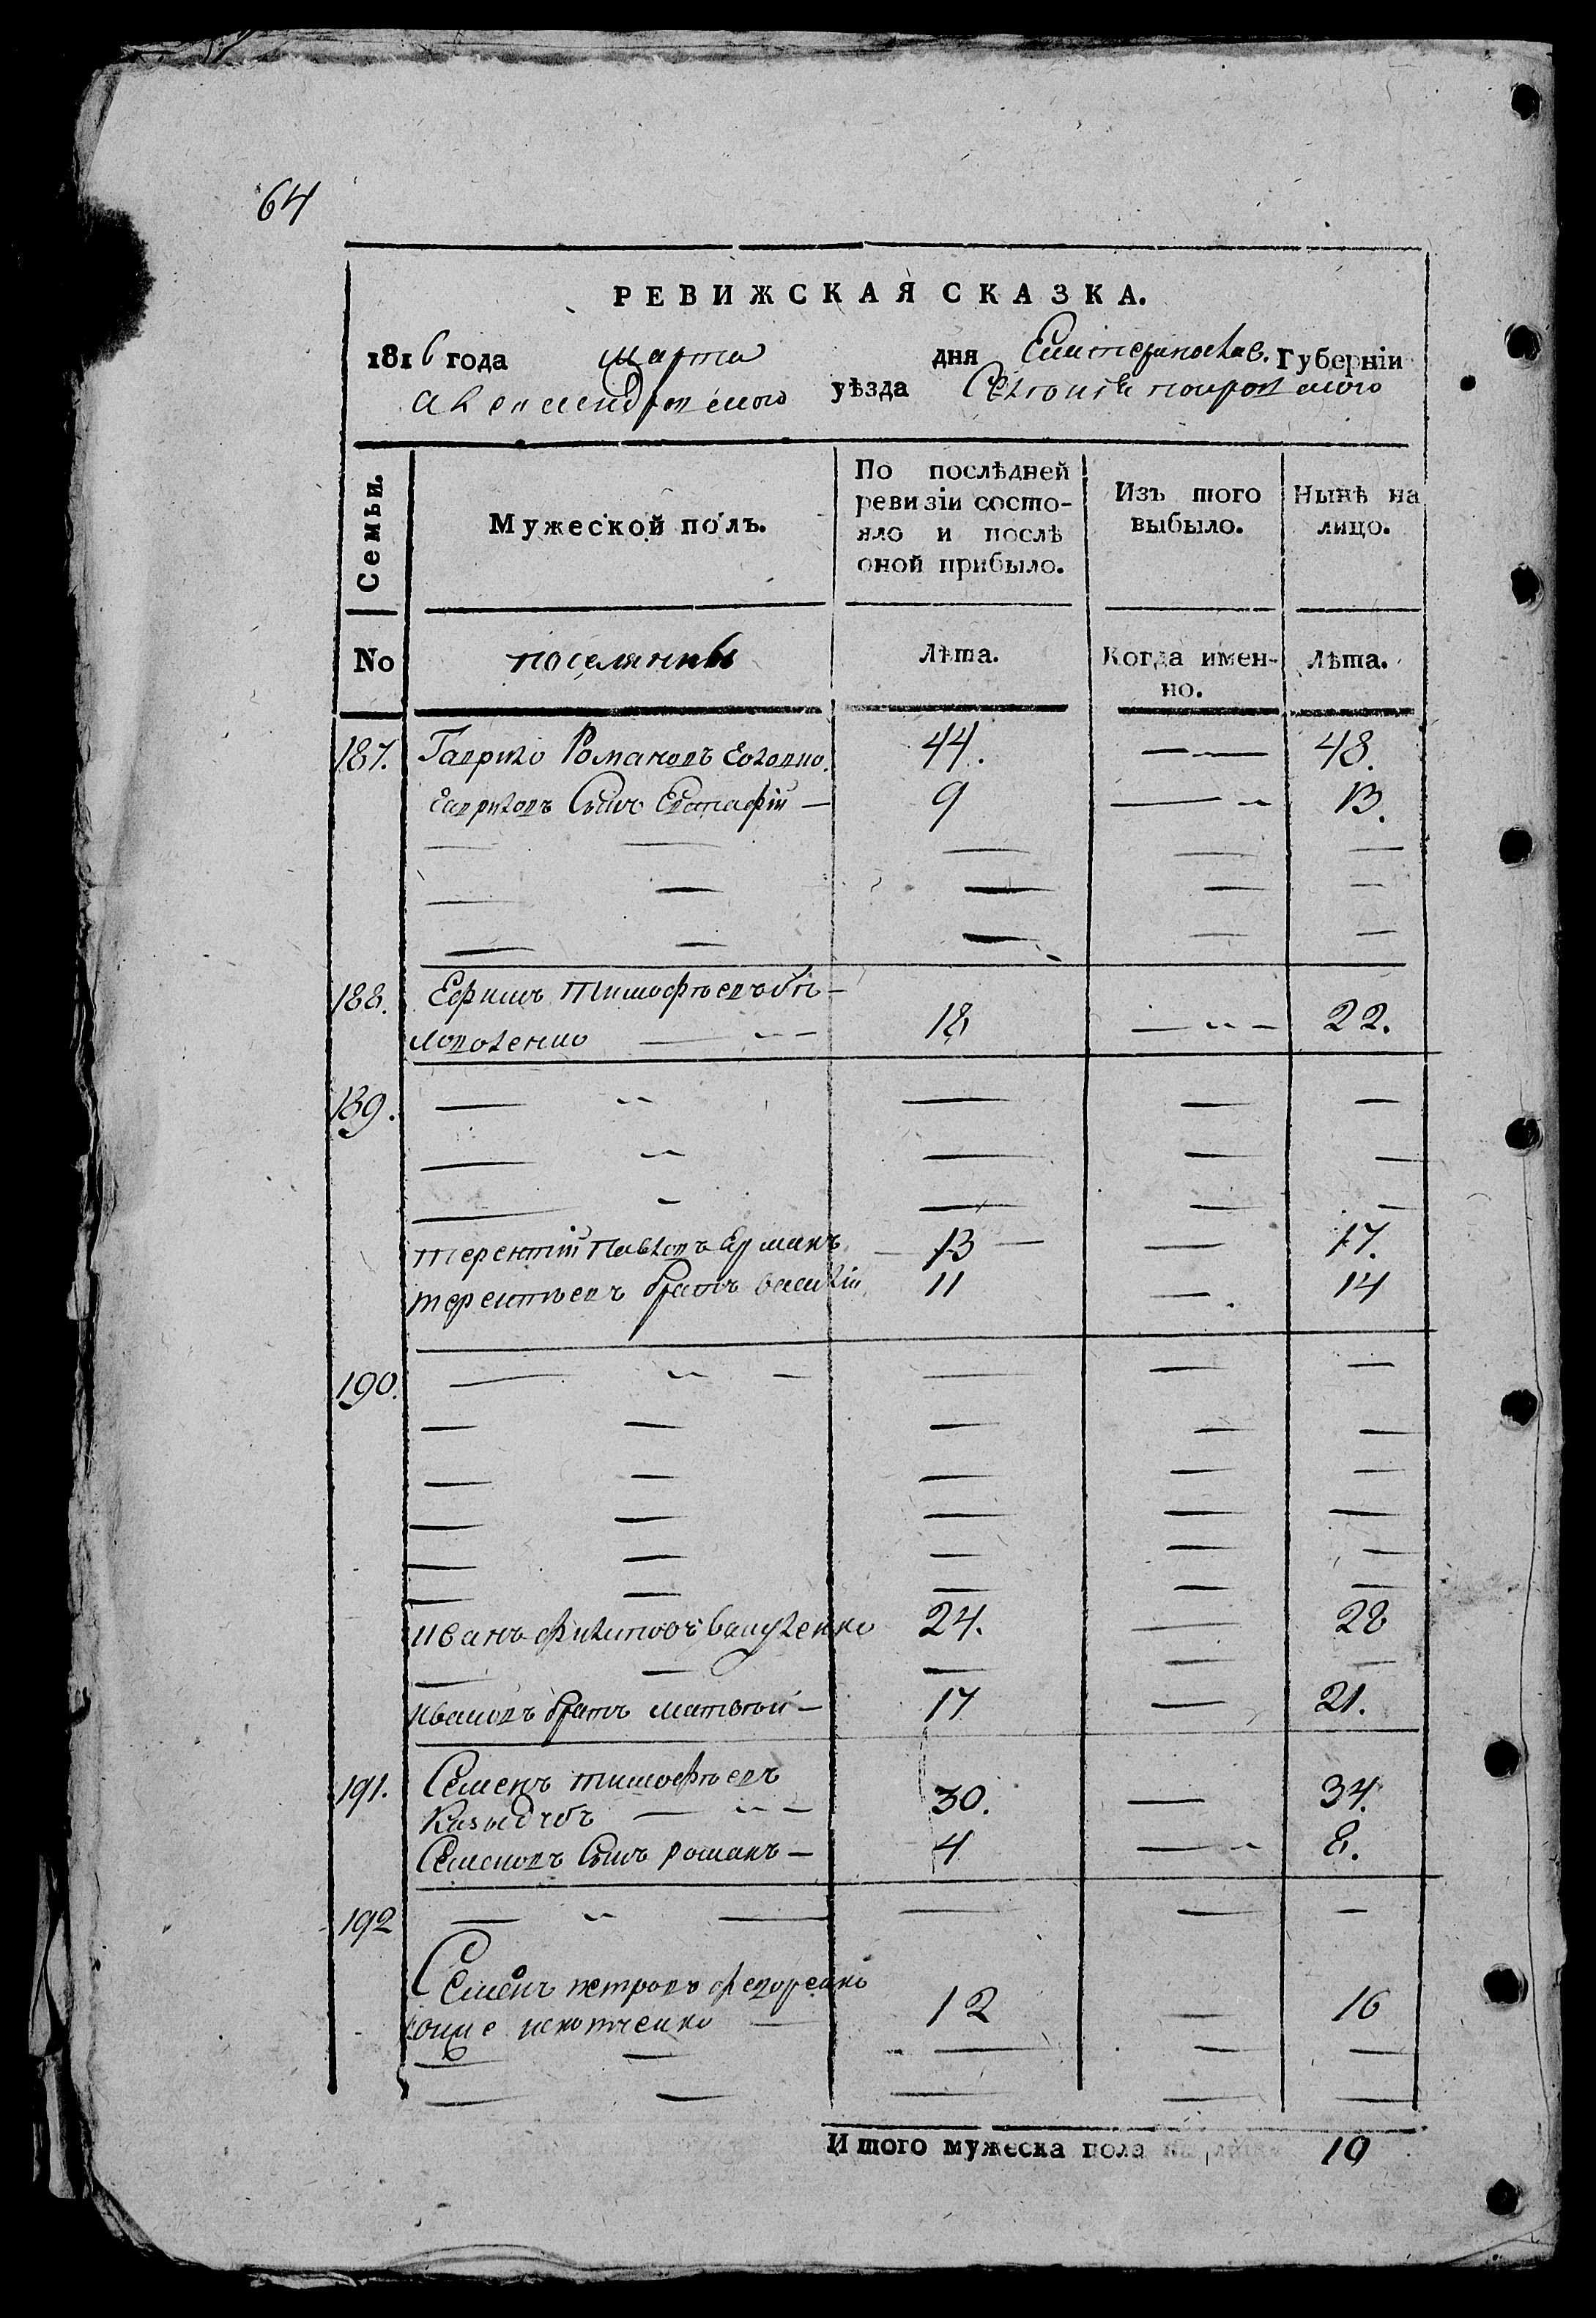 64
РЕВИЖСКАЯ СКАЗКА.
1816 года марта дня Екатеринослав. Губерніи
Александровского уѣзда Селенія покровского
Семьи.
Мужеской полъ.
По послѣдней ревизіи состояло и послѣ оной прибыло.
Изъ того выбыло.
Нынѣ на лицо.
No поселяннъ Лѣта. Когда именно. Лѣта.
187. Гаврило Романовъ 44. — — 48.
Гавриловъ Сынъ Евстафій — 9 — 13.
188. Ефимъ Тимофѣевъ бѣ-
18 — 22.
189. — — — —
Терентій Павловъ Ермакъ — 13 — — 17.
Терентьевъ братъ василій 11 — 14
190. — — — —
Иванъ Филиповъ 24. — 28
Ивановъ братъ матвѣй — 17 — 21.
191. Семенъ тимофѣевъ
Казыдубъ — 30. — 34.
Семеновъ Сынъ романъ — 4 — 8.
192 — — — —
Семенъ петровъ федоренко
онже 12 — 16
Итого мужеска пола на лицо 10